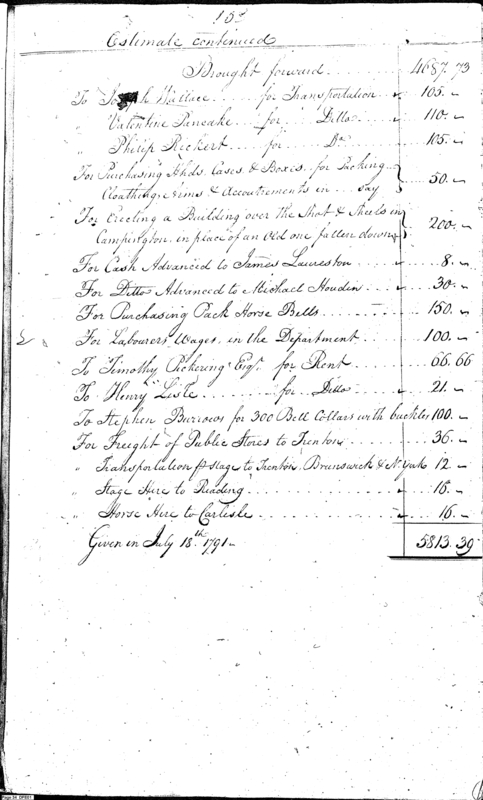 Estimate continued
Brought forward 4687.73
To Joseph Wallace for Transportation " 105.
" Valentine Pancake for Ditto " 110.
" Philip Rickert for Do 105.
For Purchasing Hhds. Cases & Boxes, for Packing
Cloathing, Arms & Accoutrements in say 50.
For Erecting a Building over the Shot & Shells in
Campington, in place of an Old one fallen down 200.
For Cash Advanced to James Laureston " 8.
For Ditto Advanced to Michael Houdin " 30.
For Purchasing Pack Horse Bells 150.
For Labourers Wages, in the Department 100.
To Timothy Pickering Esqr. for Rent 66.66
To Henry Lisle for Ditto " 21.
To Stephen Burrows for 300 Bell Collars with buckles 100.
For Freight of Public Stores to Trenton 36.
" Transportation Stage to Trenton, Brunswick & N. York 12
" Stage Hire to Reading " 16.
" Horse Hire to Carlisle " 16.
Given in July 18th. 1791 5813.39